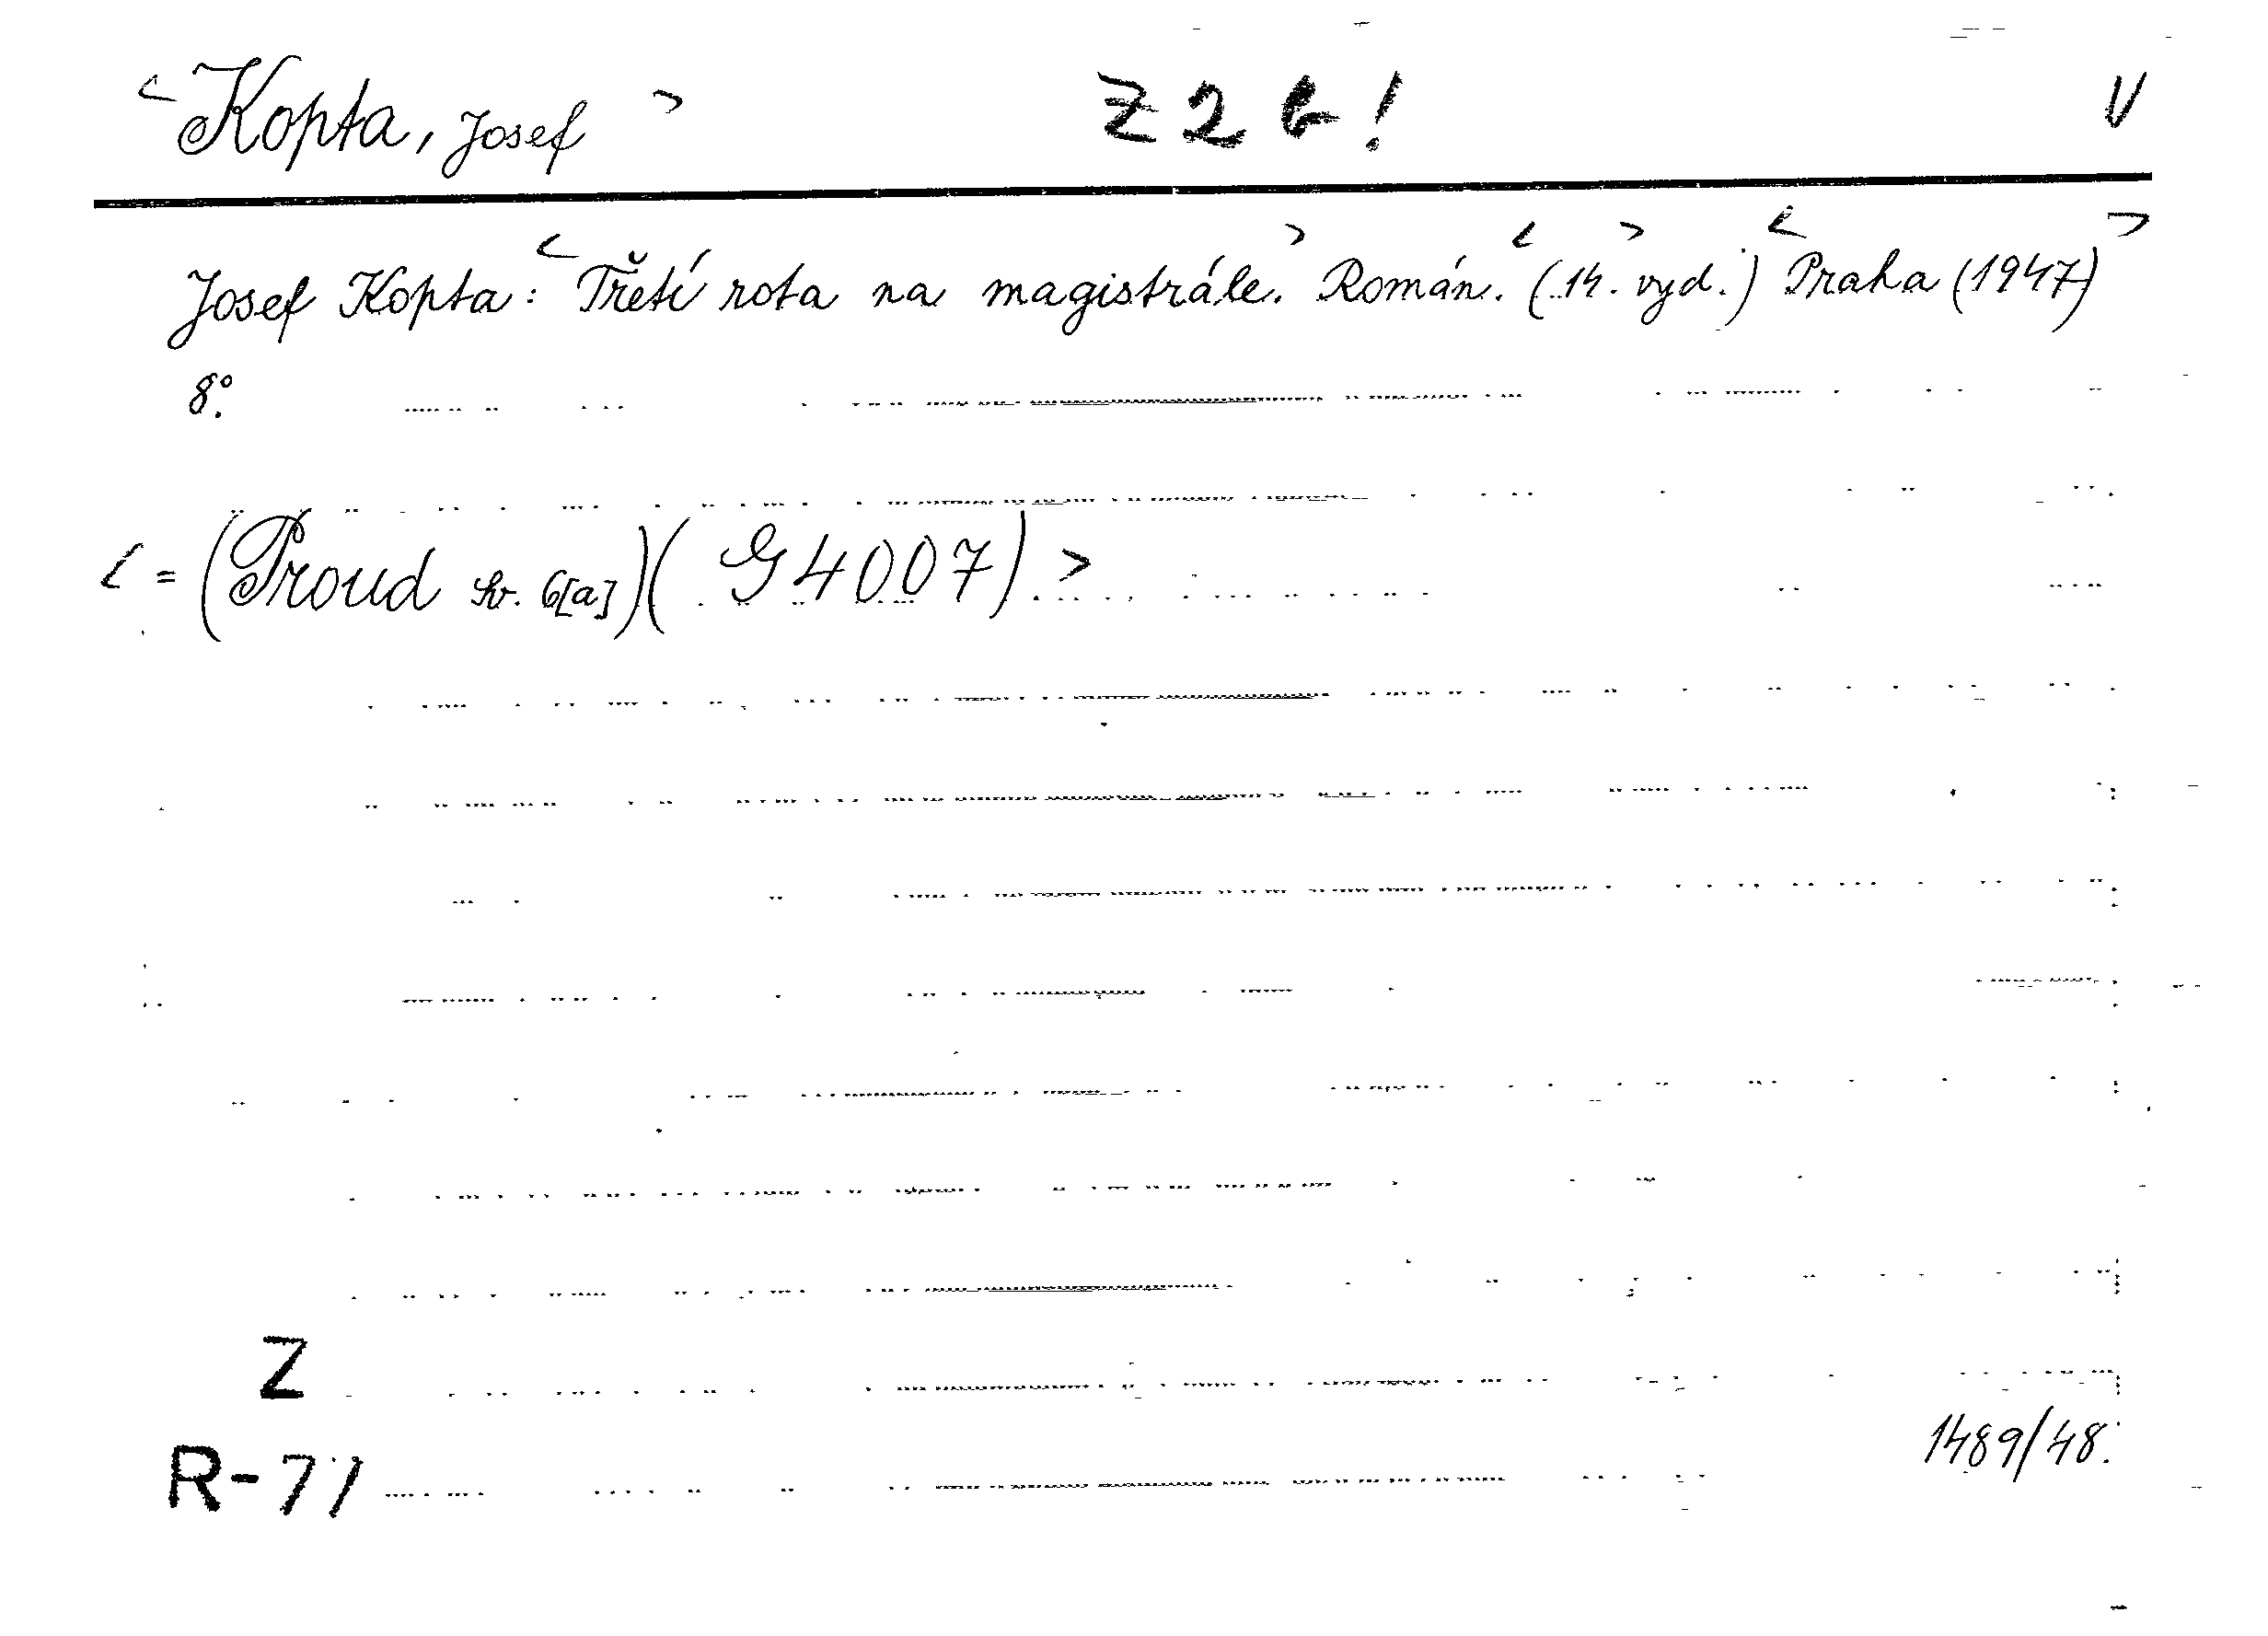 < Kopta, Josef > Z 2 b! V
Josef Kopta: < Třetí rota na magistrále. > Román. < (14. vyd.) > < Praha (1947) >
8°.
< = (Proud sv. 6[a]) (G 4007) >
Z
1489/48.
R-71